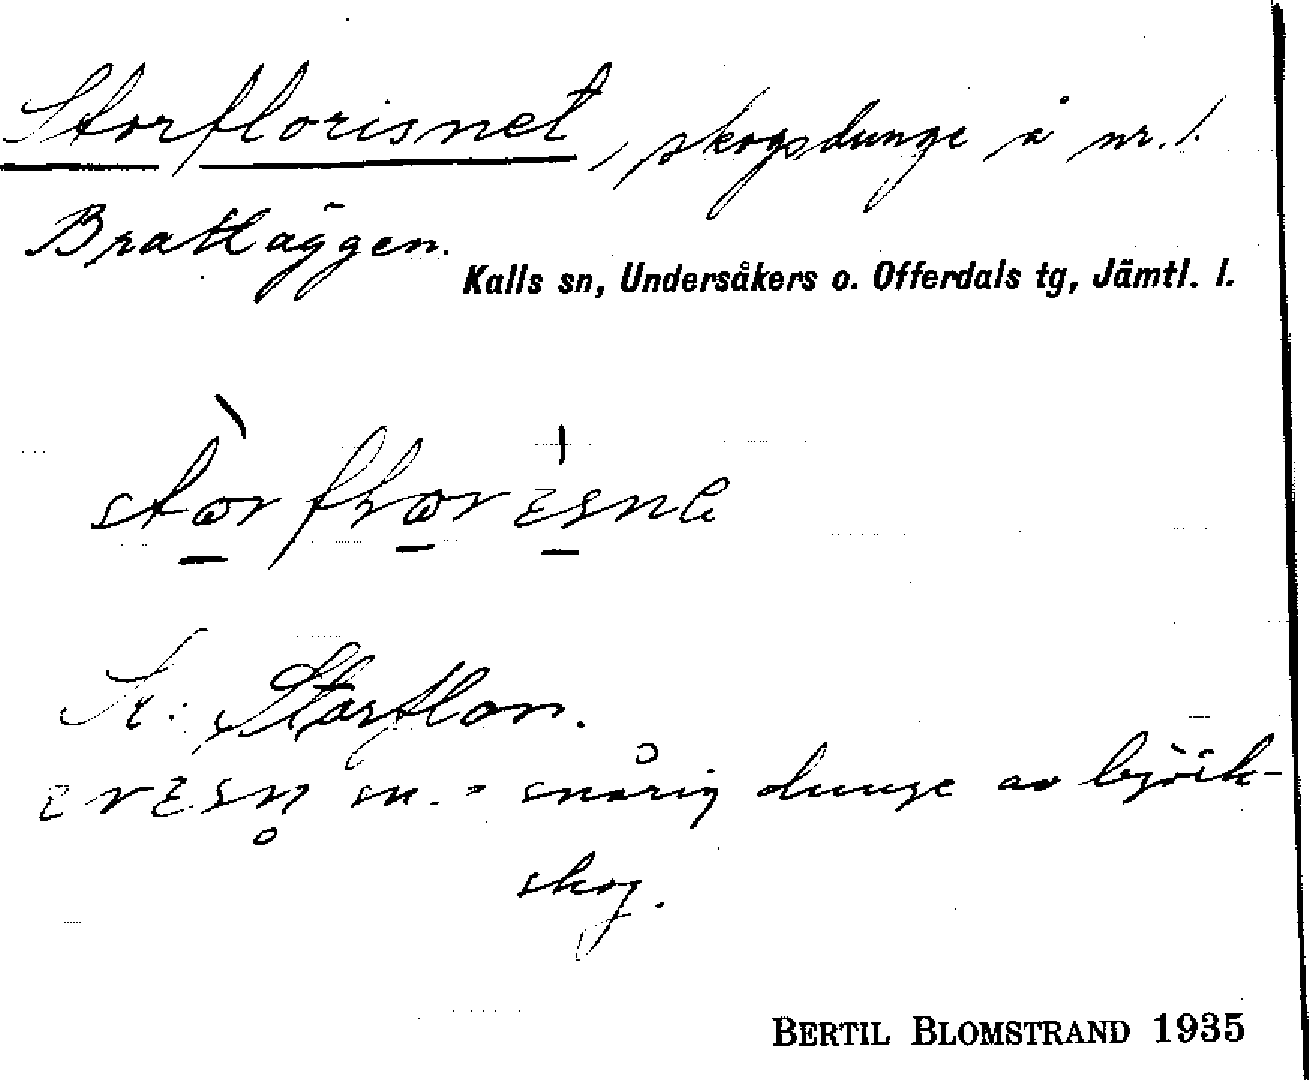 Storflorisnet, skogsdunge å nr. 1.
Brattäggen.
Kalls sn, Undersåkers o. Offerdals tg, Jämtl. l.
Storflon.
snårig dunge av björk-
skog.
BERTIL BLOMSTRAND 1935